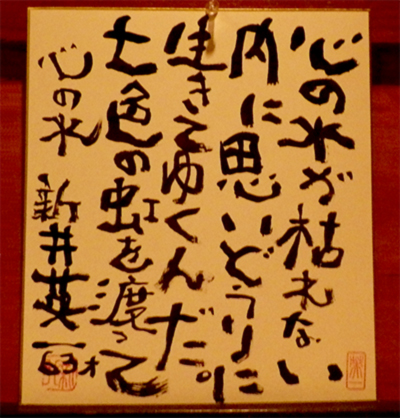 心の水が枯れない
内に思いどうりに
生きてゆくんだ。
七色の虹を渡って
心の水 新井英一 63才